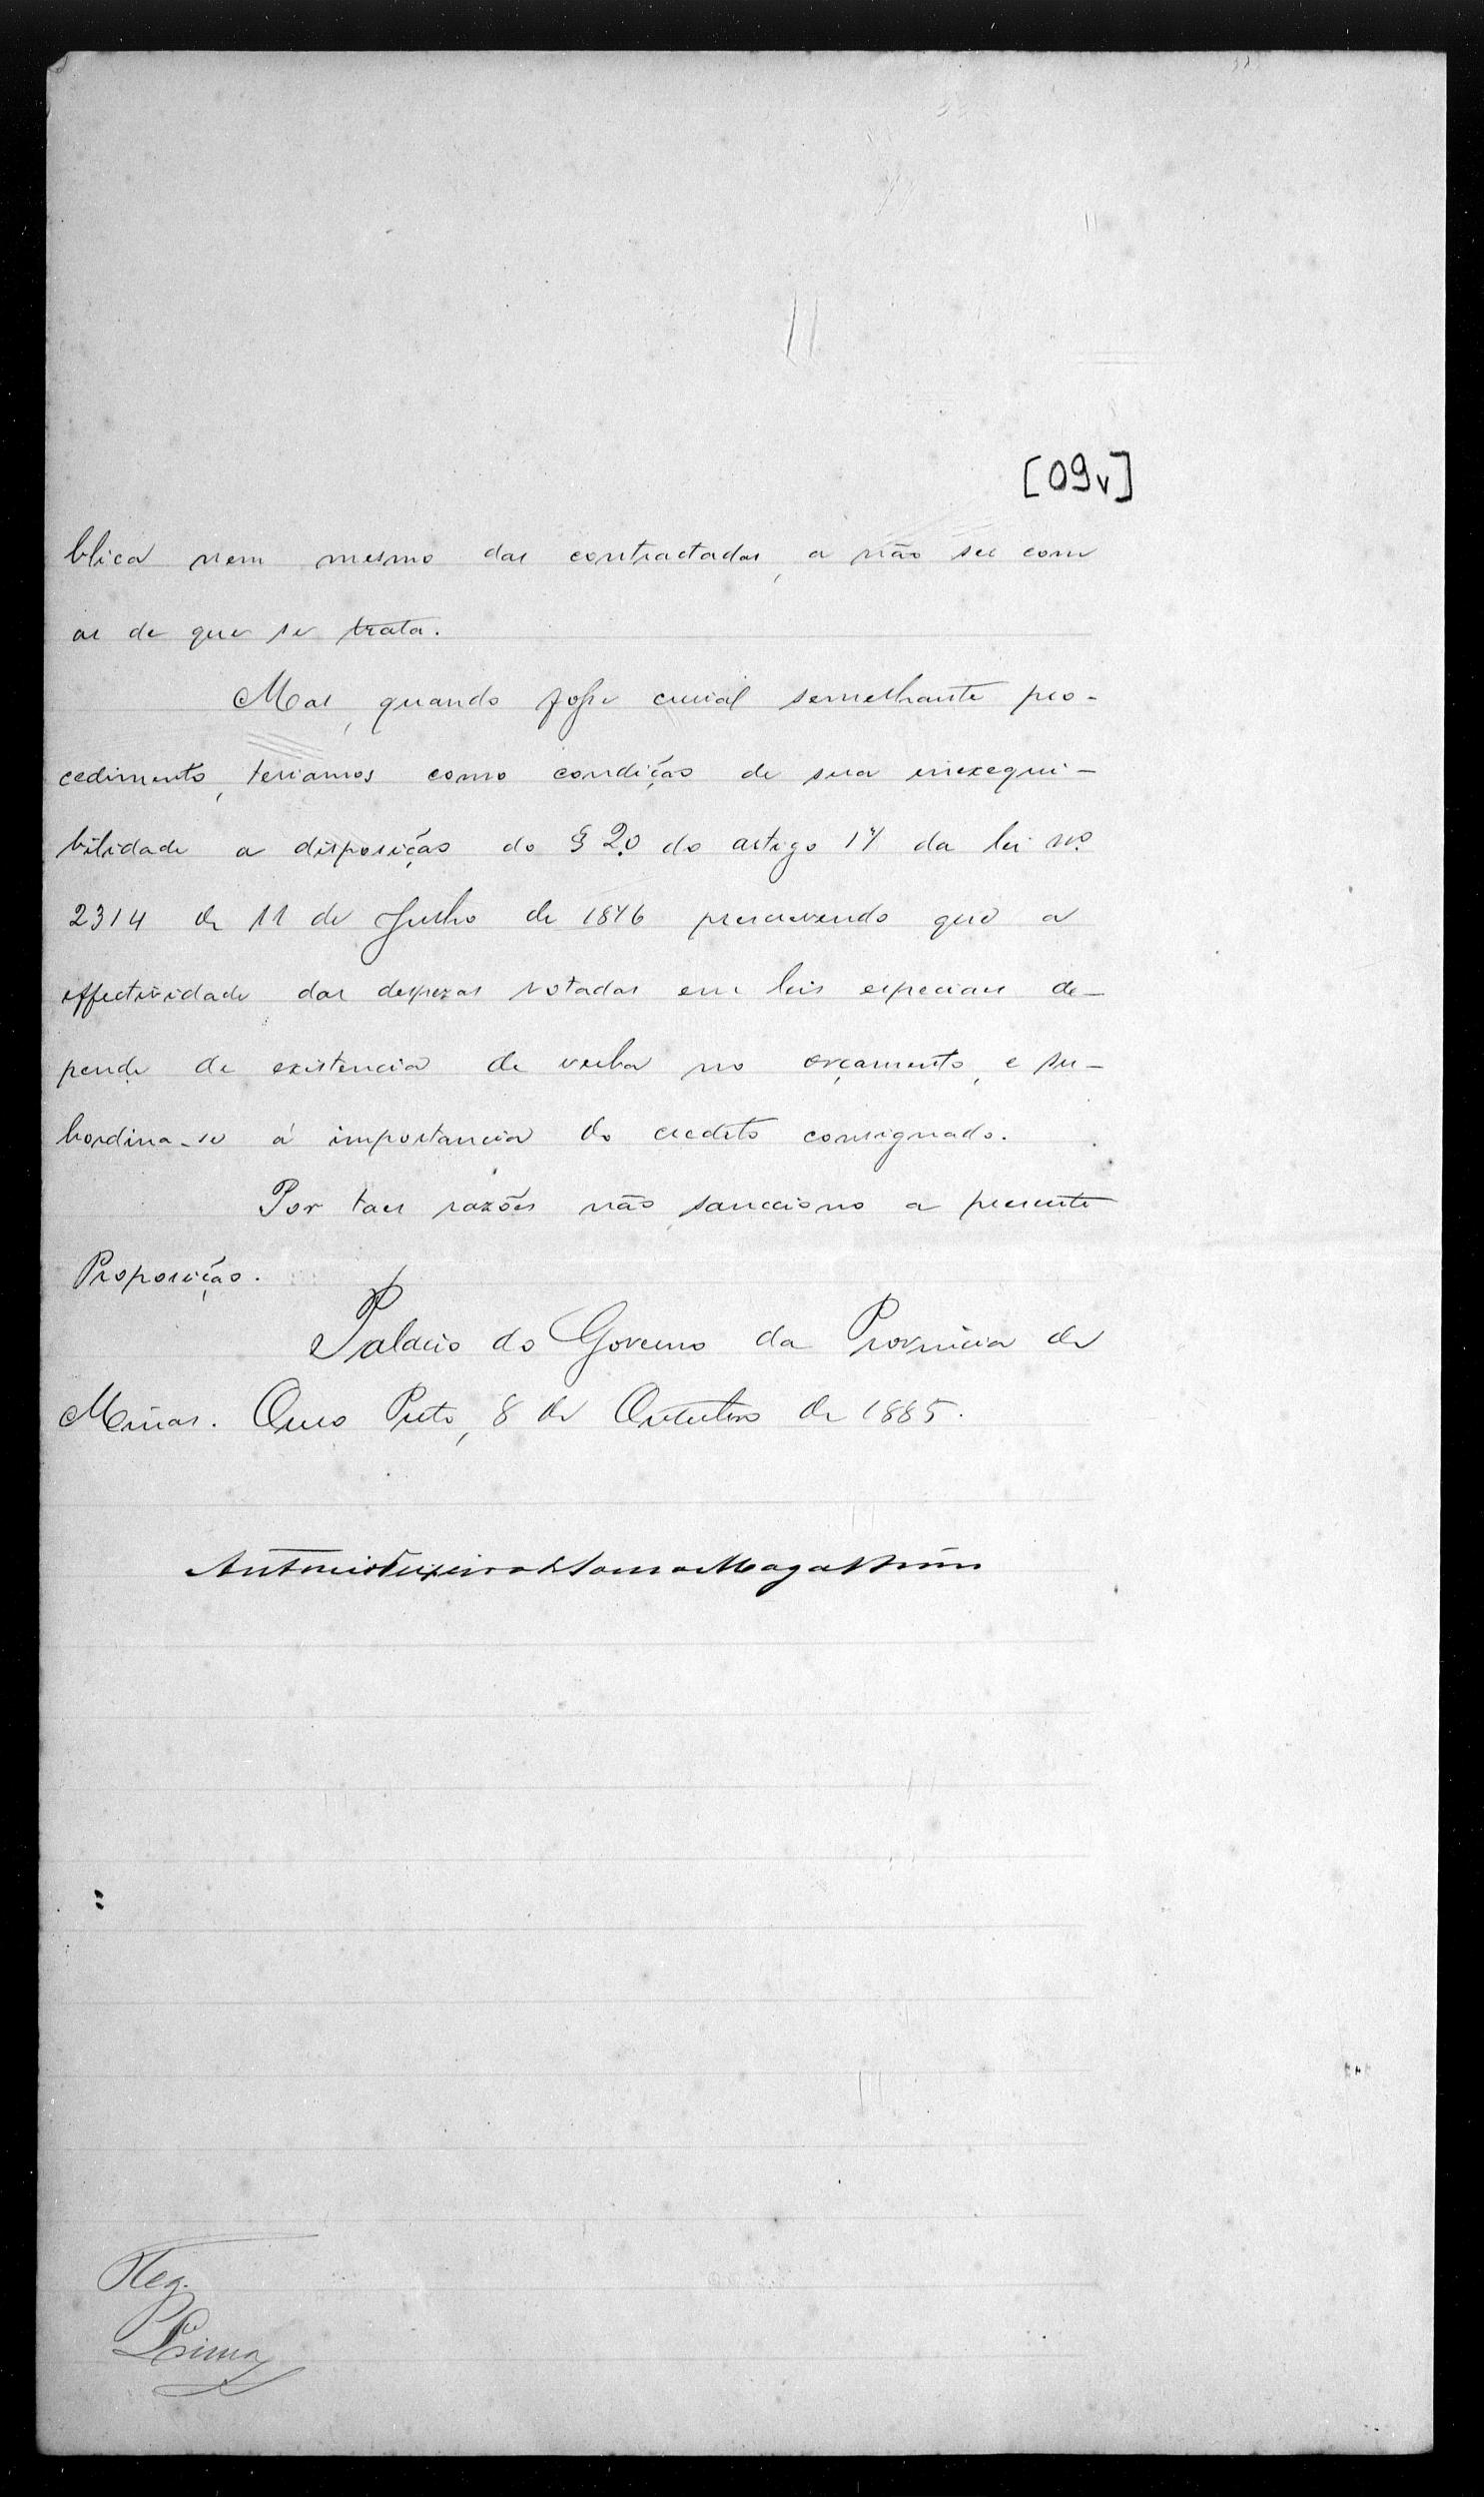 [09v]
blica nem mesmo das contractadas, a não ser com
as de que se trata.
Mas, quando fosse crucial semelhante pro-
cedimento, teriamos como condição de sua inexequi-
bilidade a disposição do § 2.º do artigo 1º da lei nº
2314 de 11 de Julho de 1876 prescrevendo que a
effectividade das despezas votadas em leis especiaes de-
pende de existencia de verba no orçamento, e su-
bordina-se á importancia do credito consignado.
Por taes razões não sancciono a presente
Proposição.
Palacio do Governo da Provincia de
Minas. Ouro Preto, 8 de Outubro de 1885.
Antonio Teixeira de Souza Magalhães
Reg.